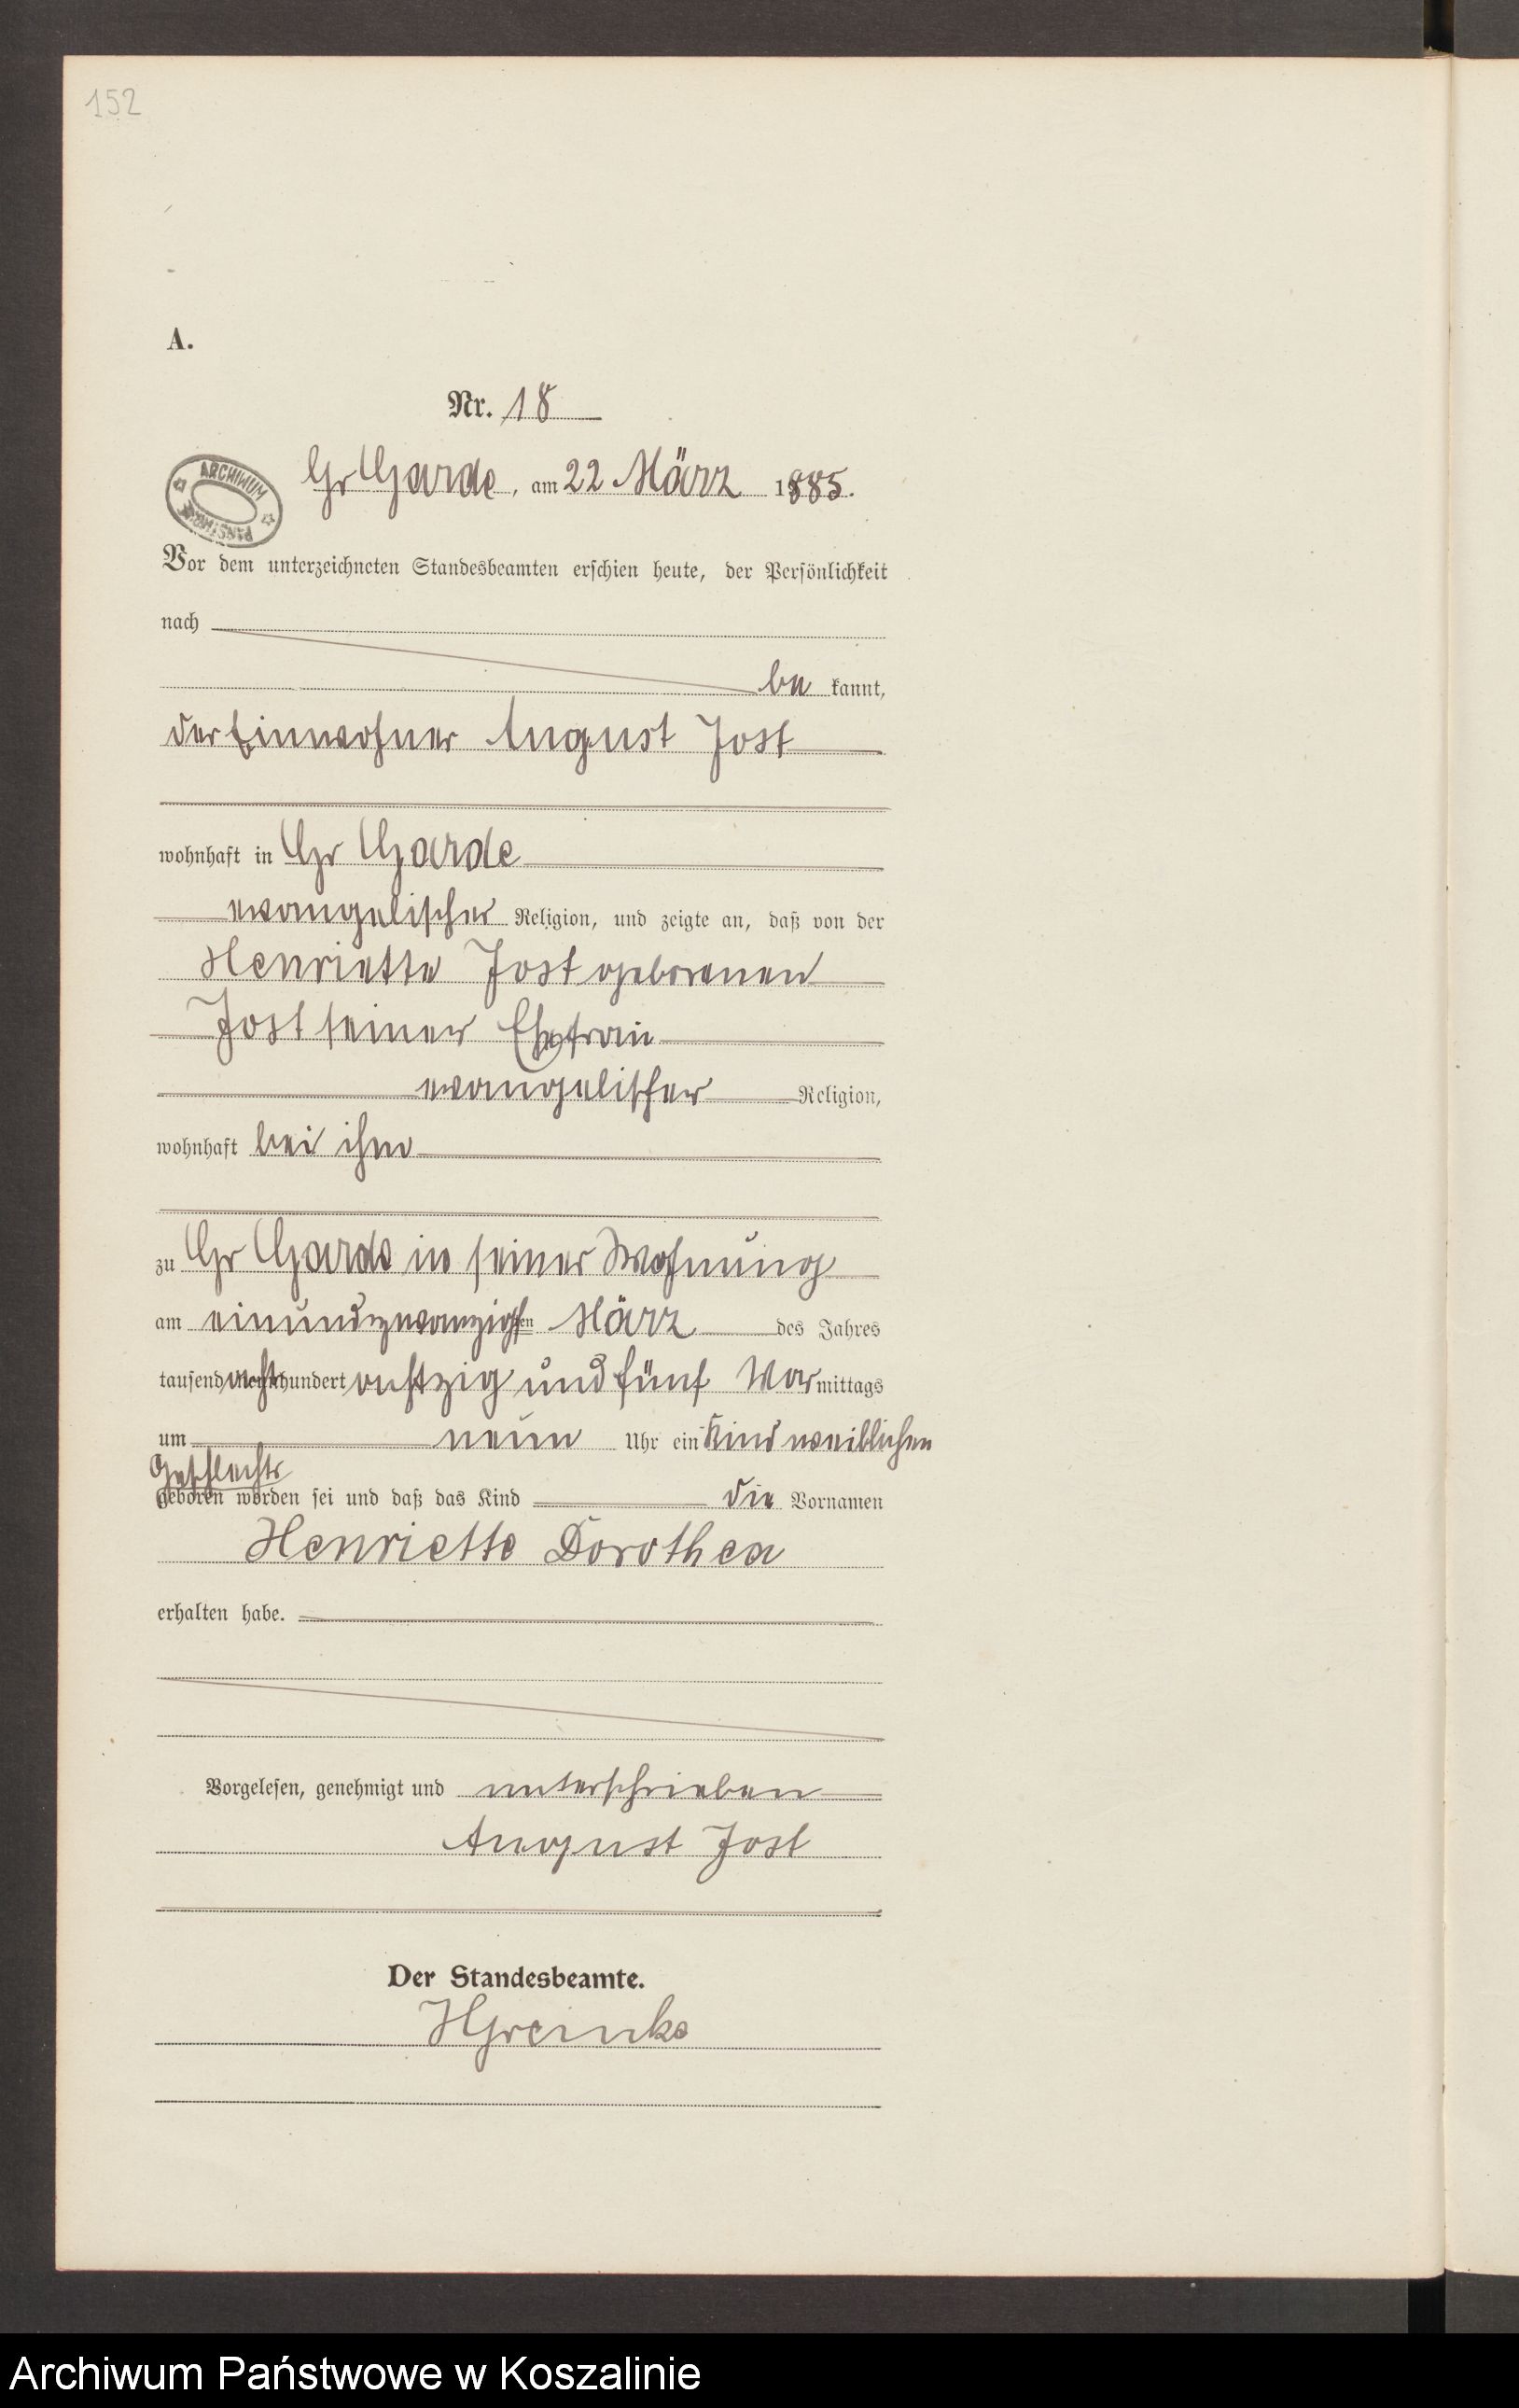 152
A.
Nr. 18
ARCHIWUM
Gr Garde, am 22 März 1885.
Vor dem unterzeichneten Standesbeamten erschien heute, der Persönlichkeit
nach
be kannt,
der Einwohner August Jost
wohnhaft in Gr Garde
evangelischer Religion, und zeigte an, daß von der
Henriette Jost geborenen
Jost seiner Ehefrau
evangelischer Religion,
wohnhaft bei ihm
zu Gr Garde in seiner Wohnung
am einundzwanzigsten März des Jahres
tausend acht hundert achtzig und fünf Vor mittags
um neun Uhr ein Kind weiblichen
Geschlechts
geboren worden sei und daß das Kind die Vornamen
Henriette Dorothea
erhalten habe.
Vorgelesen, genehmigt und unterschrieben
August Jost
Der Standesbeamte.
HGreinke
Archiwum Państwowe w Koszalinie